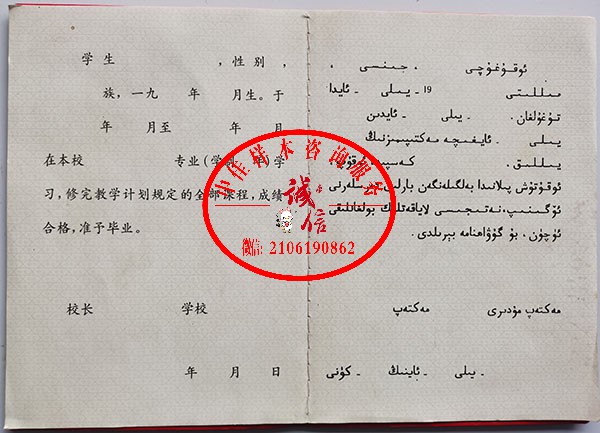 学生　　　　，性别　，
族，一九　年　月生。于
年　月至　年　月
在本校　　　专业(学制　年)学
习，修完教学计划规定的全部课程，成绩
合格，准予毕业。
校长　　　学校
年　月　日
ئوقۇغۇچى　، جىنسى　،
مىللىتى　19 - يىلى - ئايدا
تۇغۇلغان. - يىلى - ئايدىن
يىلى - ئايغىچە مەكتىپىمىزنىڭ
يىللىق. كەسپىدە ئوقۇپ
ئوقۇتۇش پىلانىدا بەلگىلەنگەن بارلىق دەرسلەرنى
ئۆگىنىپ، نەتىجىسى لاياقەتلىك بولغانلىقى
ئۈچۈن، بۇ گۇۋاھنامە بېرىلدى.
مەكتەپ مۇدىرى　مەكتەپ
- يىلى - ئاينىڭ - كۈنى
中佳样本咨询服务
诚信
微信: 2106190862